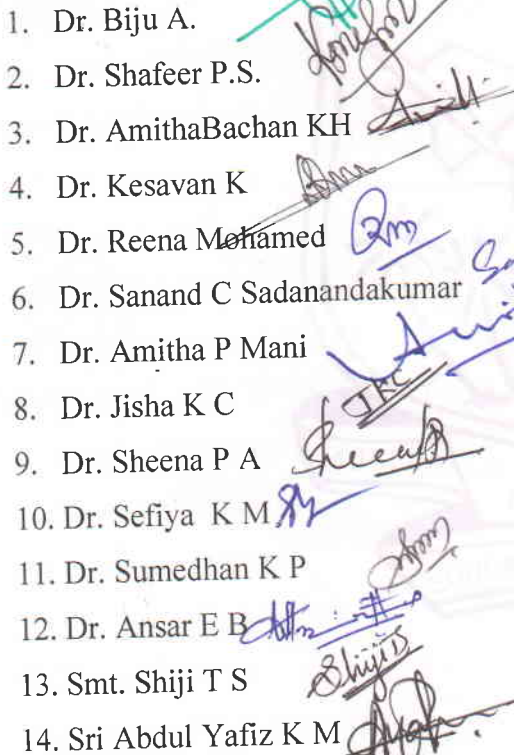 1. Dr. Biju A.
2. Dr. Shafeer P.S.
3. Dr. AmithaBachan KH
4. Dr. Kesavan K
5. Dr. Reena Mohamed
6. Dr. Sanand C Sadanandakumar
7. Dr. Amitha P Mani
8. Dr. Jisha K C JKC
9. Dr. Sheena P A
10. Dr. Sefiya K M
11. Dr. Sumedhan K P
12. Dr. Ansar E B
13. Smt. Shiji T S
14. Sri Abdul Yafiz K M